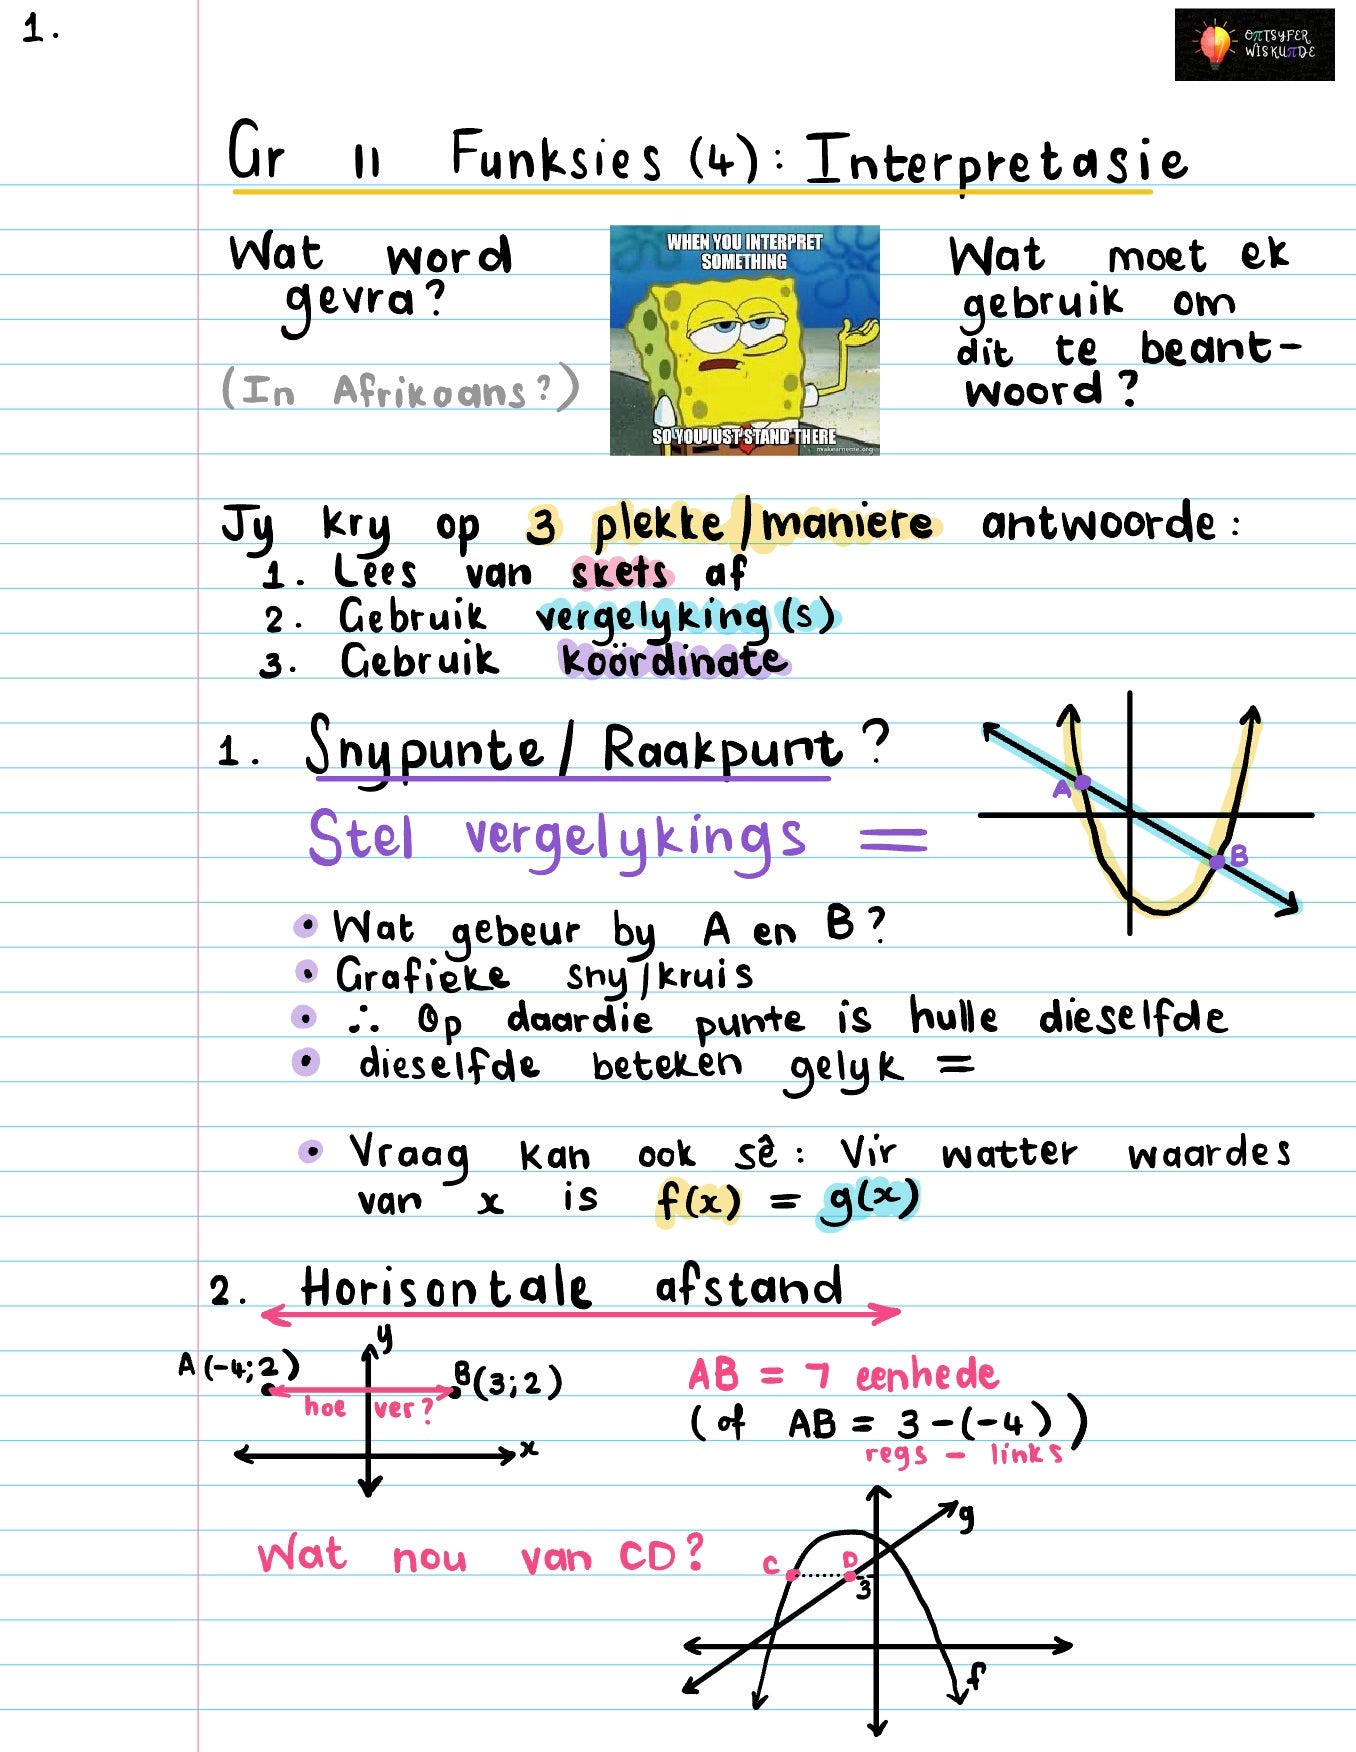 1.
OπTSYFER
WISKUπDE
Gr 11 Funksies (4): Interpretasie
Wat word
gevra?
(In Afrikaans?)
WHEN YOU INTERPRET
SOMETHING
SO YOU JUST STAND THERE
makeameme.org
Wat moet ek
gebruik om
dit te beant-
woord?
Jy kry op 3 plekke/maniere antwoorde:
1. Lees van skets af
2. Gebruik vergelyking(s)
3. Gebruik koördinate
1. Snypunte/Raakpunt?
Stel vergelykings =
A
B
• Wat gebeur by A en B?
• Grafieke sny/kruis
• ∴ Op daardie punte is hulle dieselfde
• dieselfde beteken gelyk =
• Vraag kan ook sê: Vir watter waardes
van x is f(x) = g(x)
2. Horisontale afstand
y
A(-4;2)
B(3;2)
hoe ver?
x
AB = 7 eenhede
(of AB = 3-(-4))
regs - links
Wat nou van CD?
g
C
D
3
f